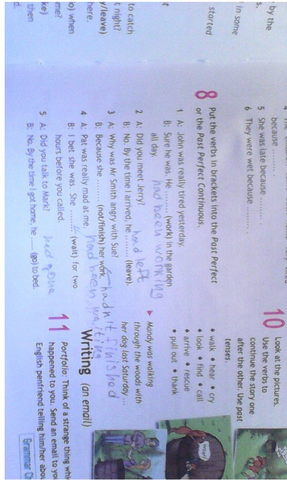 by the
in some
started
to catch
t night?
y/leave)
here.
o) when
me?
ke)
then
because ..........
5 She was late because ..........
6 They were wet because ..........
8 Put the verbs in brackets into the Past Perfect
or the Past Perfect Continuous.
1 A: John was really tired yesterday.
B: Sure he was. He ..... (work) in the garden
all day. had been working
2 A: Did you meet Jerry?
B: No. By the time I arrived, he ..... (leave).
had left
3 A: Why was Mr Smith angry with Sue?
B: Because she ..... (not/finish) her work.
hadn't finished
4 A: Pat was really mad at me.
B: I bet she was. She ..... (wait) for two
hours before you called. had been waiting
5 A: Did you talk to Mark?
B: No. By the time I got home, he ..... (go) to bed.
had gone
10 Look at the pictures.
Use the verbs to
continue the story one
after the other. Use past
tenses.
• walk • hear • cry
• look • find • call
• arrive • rescue
• pull out • thank
Mandy was walking
through the woods with
her dog last Saturday ...
Writing (an email)
11 Portfolio: Think of a strange thing whi
happened to you. Send an email to yo
English penfriend telling him/her abou
Grammar